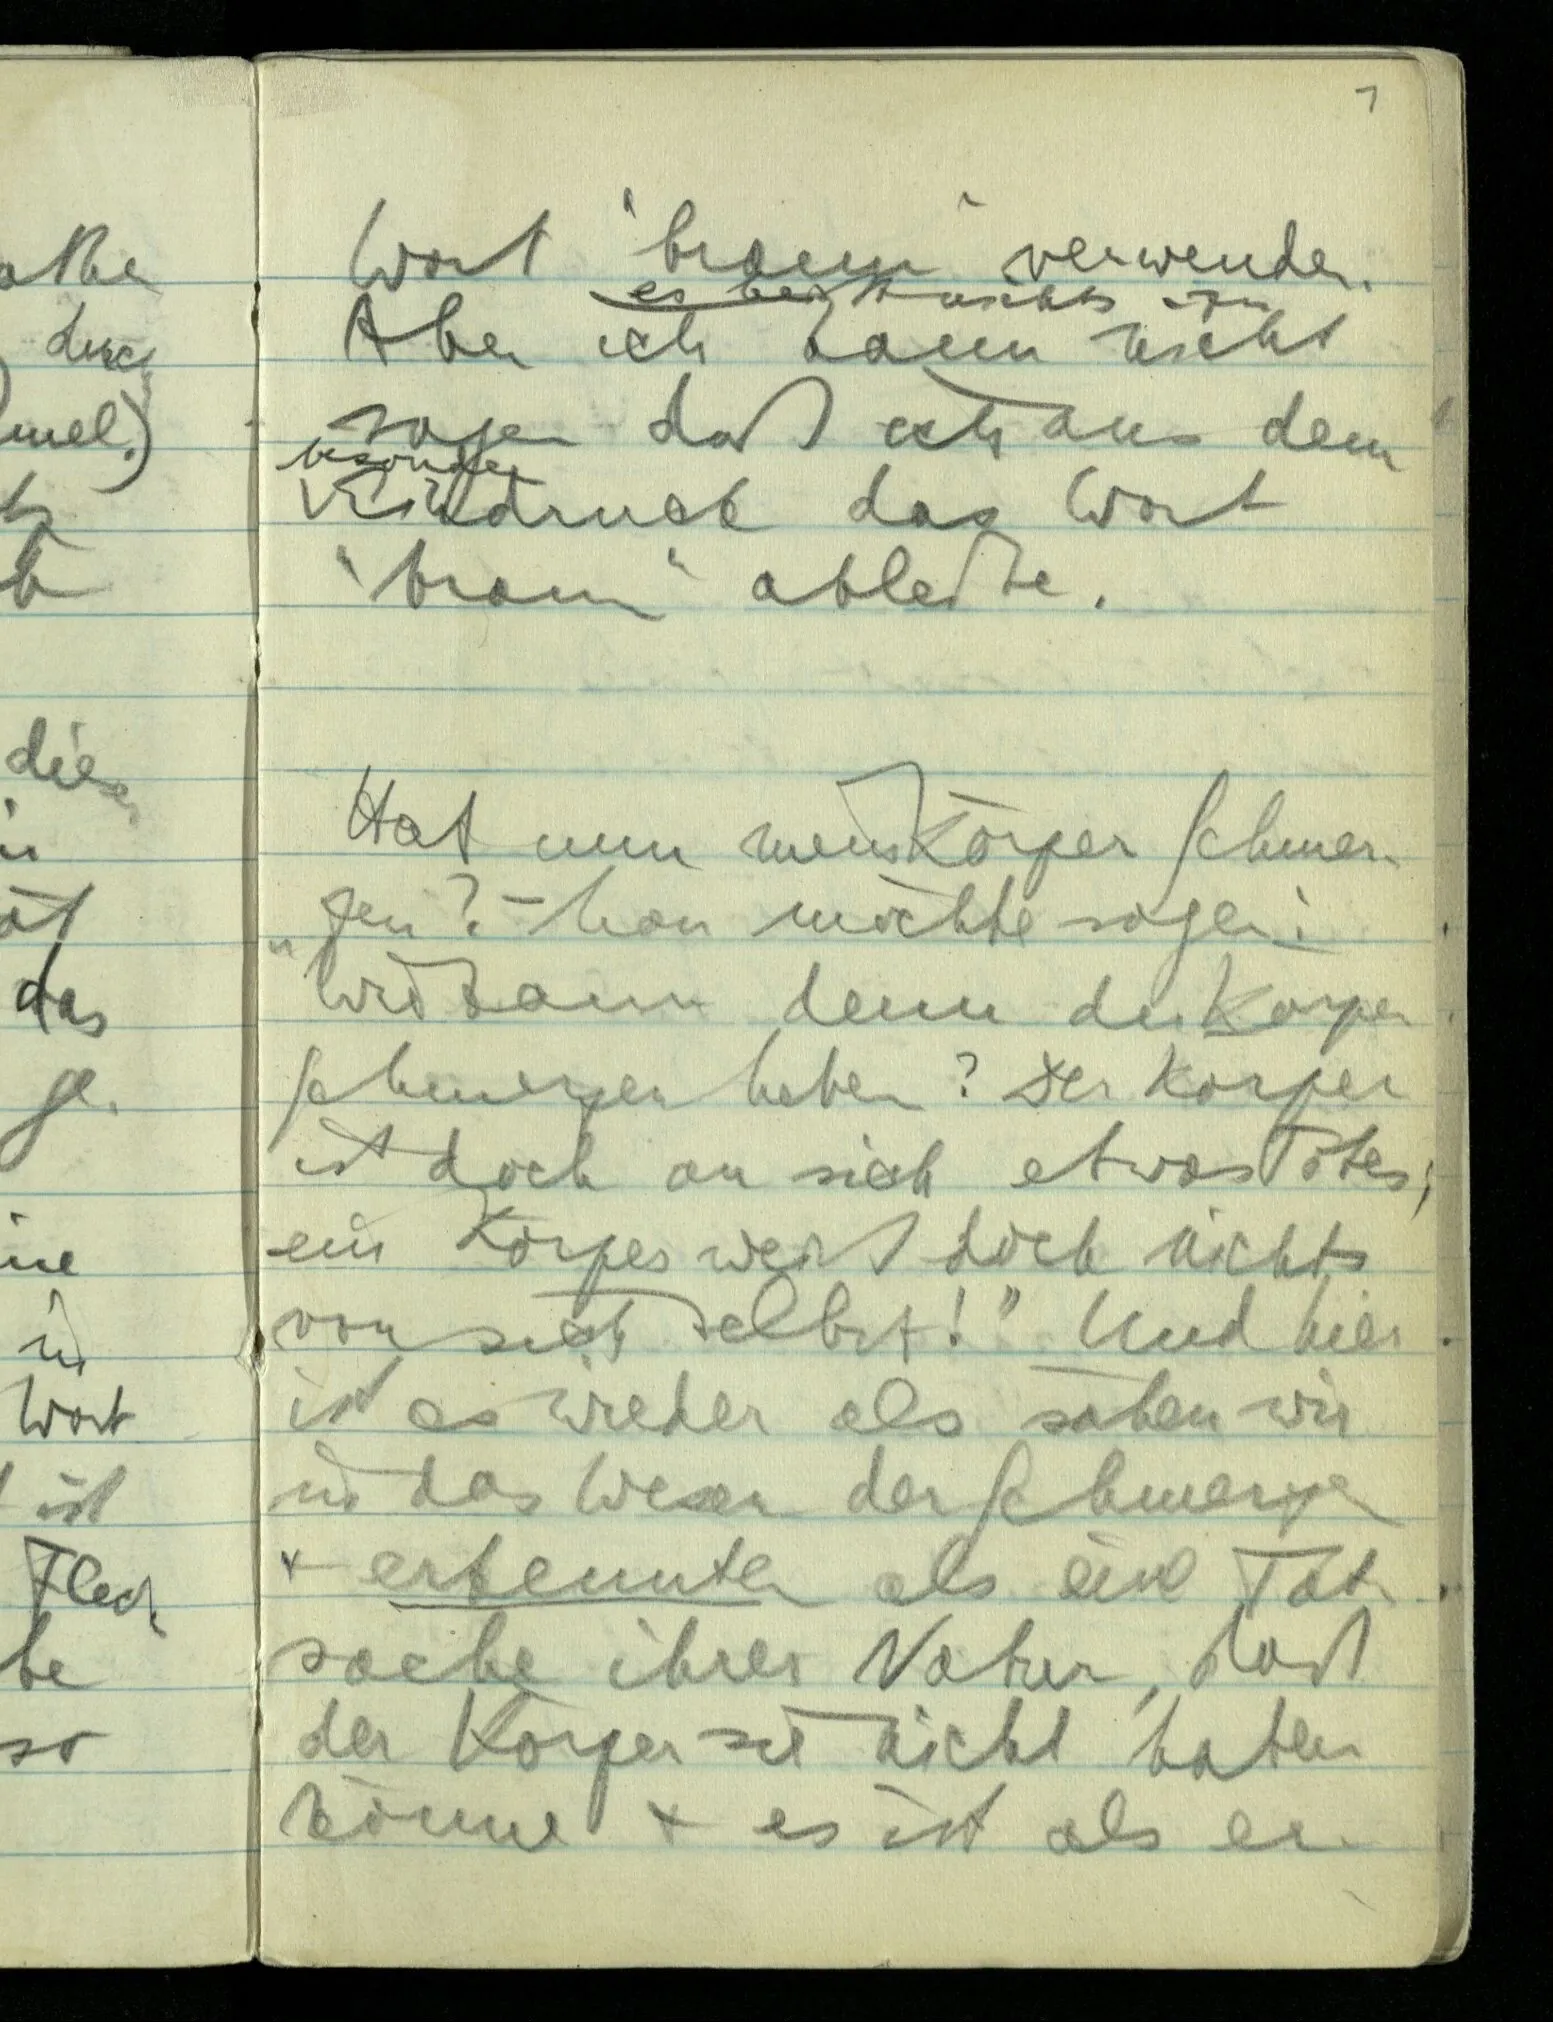 7
Wort "braun" verwenden.
es
nichts
Aber ich kann nicht
sagen daß ich aus dem
besonderen
Eindruck das Wort
"braun" ableite.
Hat nun mein Körper Schmer-
zen? – Man möchte sagen:
"Wie kann denn der Körper
Schmerzen haben? Der Körper
ist doch an sich etwas Totes;
ein Körper weiß doch nichts
von sich selbst!" Und hier
ist es wieder als sähen wir
in das Wesen der Schmerzen
+ erkennten als eine Tat-
sache ihrer Natur, daß
der Körper sie nicht haben
könne + es ist als er-
die
das
ge-
in
Wort
ist
Fleck
so